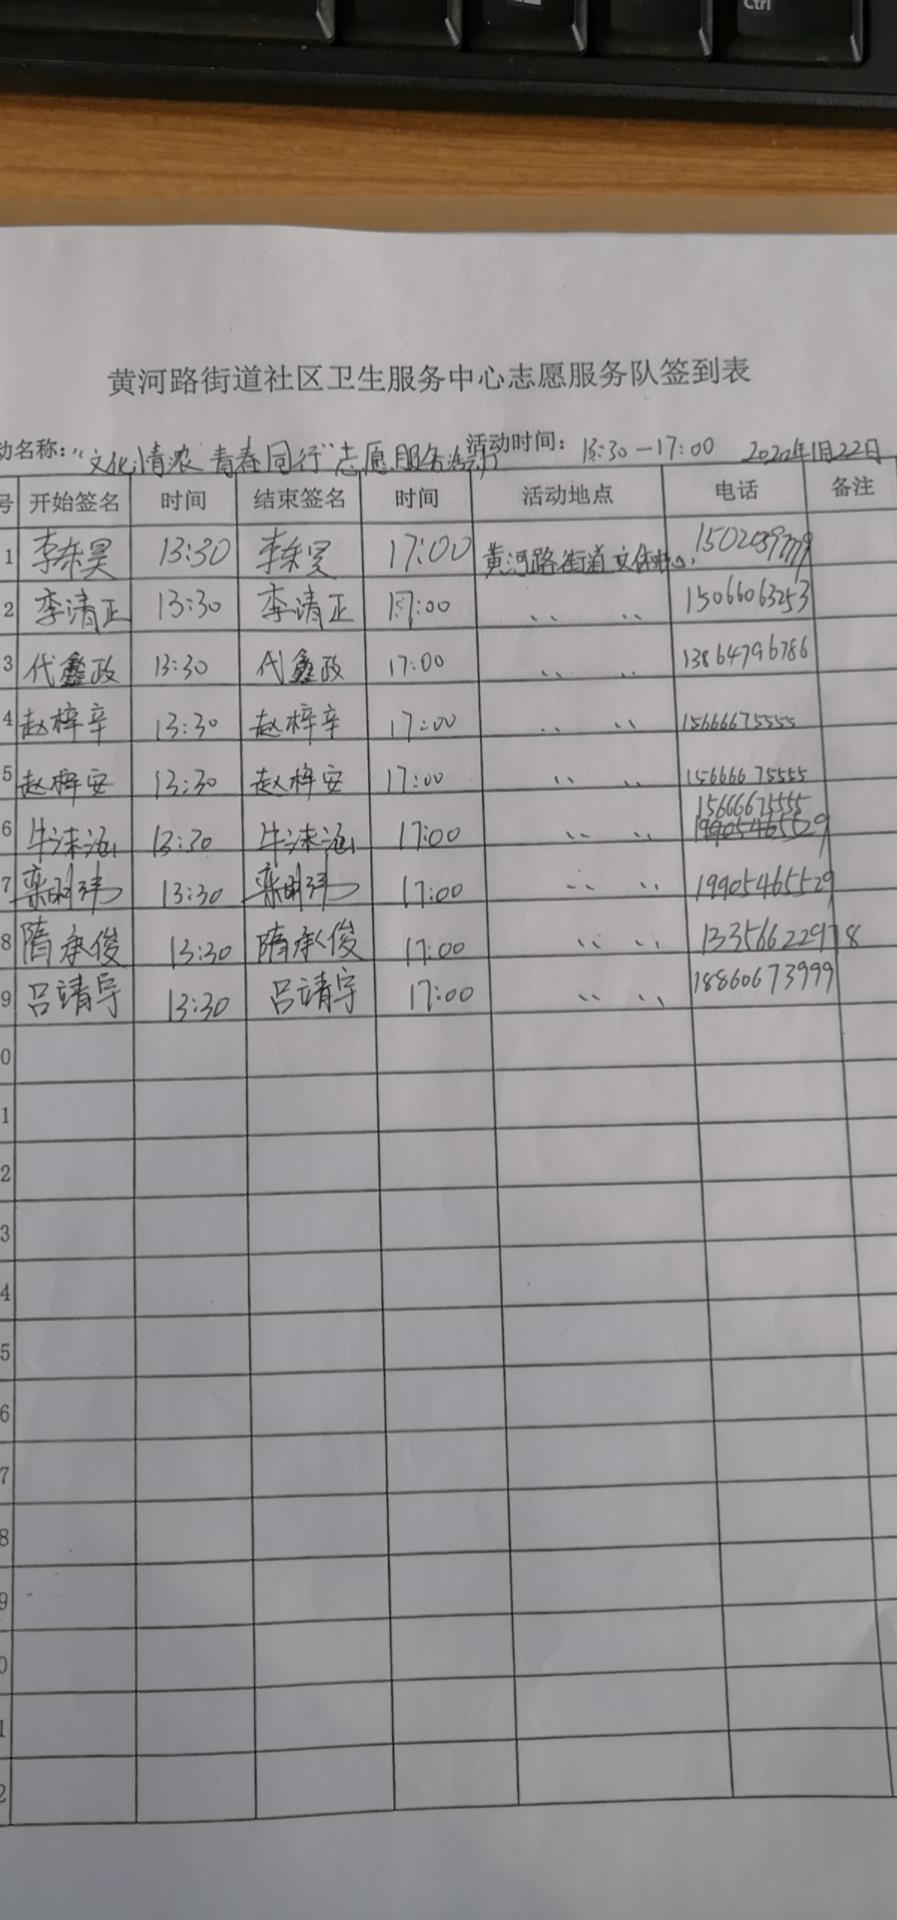 Ctrl
黄河路街道社区卫生服务中心志愿服务队签到表
动名称：“文化情浓 青春同行”志愿服务活动 活动时间：13:30—17:00 2022年1月22日
号 开始签名 时间 结束签名 时间 活动地点 电话 备注
1 李东昊 13:30 李东昊 17:00 黄河路街道文体中心
2 李清正 13:30 李清正 17:00 〃 〃 15066063253
3 代鑫政 13:30 代鑫政 17:00 〃 〃 13864796786
4 赵梓辛 13:30 赵梓辛 17:00 〃 〃 15666675555
5 赵梓安 13:30 赵梓安 17:00 〃 〃 15666675555
6 牛沫涵 13:30 牛沫涵 17:00 〃 〃 15666675555
7 栾明玮 13:30 栾明玮 17:00 〃 〃 19905465529
8 隋承俊 13:30 隋承俊 17:00 〃 〃 13356622978
9 吕靖宇 13:30 吕靖宇 17:00 〃 〃 18860673999
0
1
2
3
4
5
6
7
8
9
0
1
2